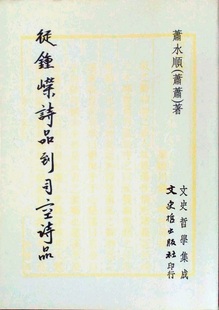 蕭水順(蕭蕭)著
從鍾嶸詩品到司空詩品
文史哲學集成
文史哲出版社印行